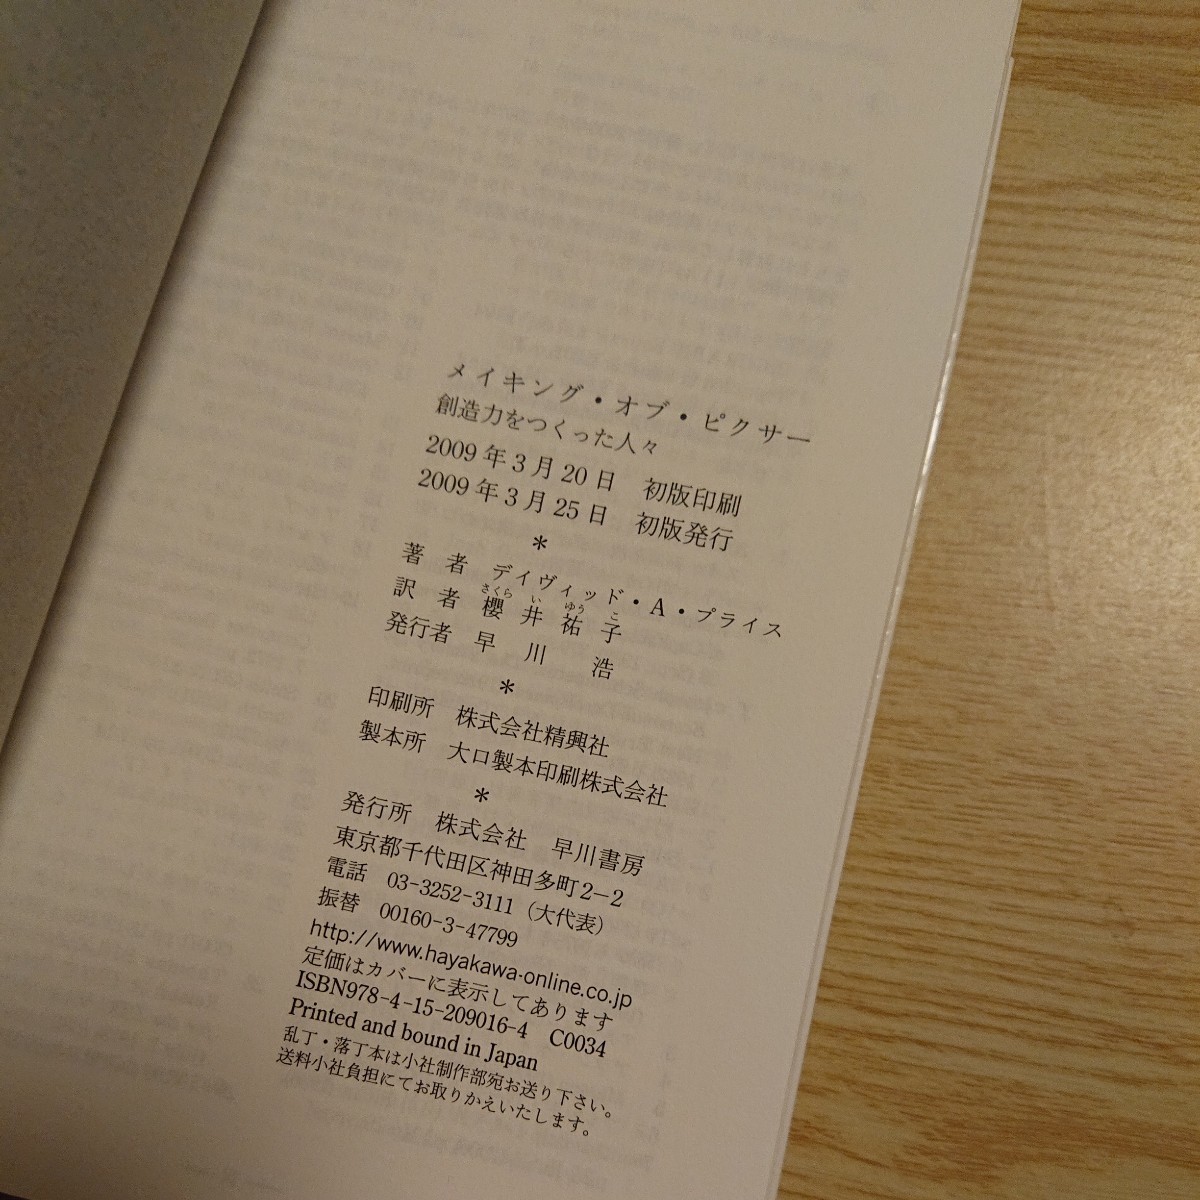 メイキング・オブ・ピクサー
創造力をつくった人々
2009年3月20日　初版印刷
2009年3月25日　初版発行
*
著　者　デイヴィッド・A・プライス
さくら い ゆう こ
訳　者　櫻井祐子
発行者　早　川　　浩
*
印刷所　株式会社精興社
製本所　大口製本印刷株式会社
*
発行所　株式会社　早川書房
東京都千代田区神田多町2-2
電話　03-3252-3111（大代表）
振替　00160-3-47799
http://www.hayakawa-online.co.jp
定価はカバーに表示してあります
ISBN978-4-15-209016-4　C0034
Printed and bound in Japan
乱丁・落丁本は小社制作部宛お送り下さい。
送料小社負担にてお取りかえいたします。